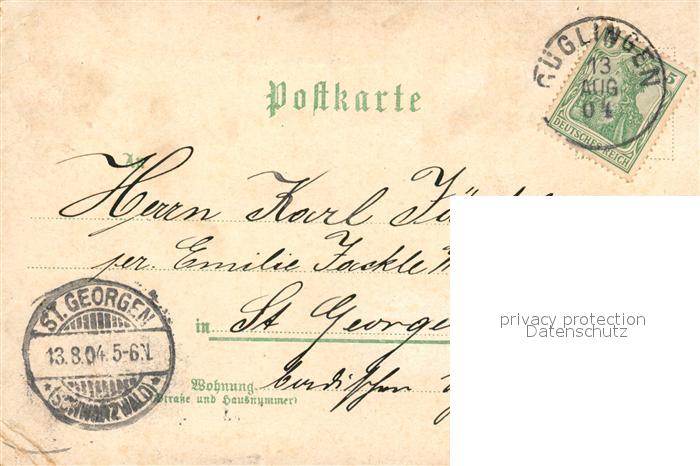 GÜGLINGEN
13
AUG
04
5
DEUTSCHES REICH
Postkarte
An
Herrn Karl
per. Emilie Jackle
in St George
Wohnung
(Straße und Hausnummer)
badischen
ST. GEORGEN
13.8.04. 5-6N.
(SCHWARZWALD)
privacy protection
Datenschutz